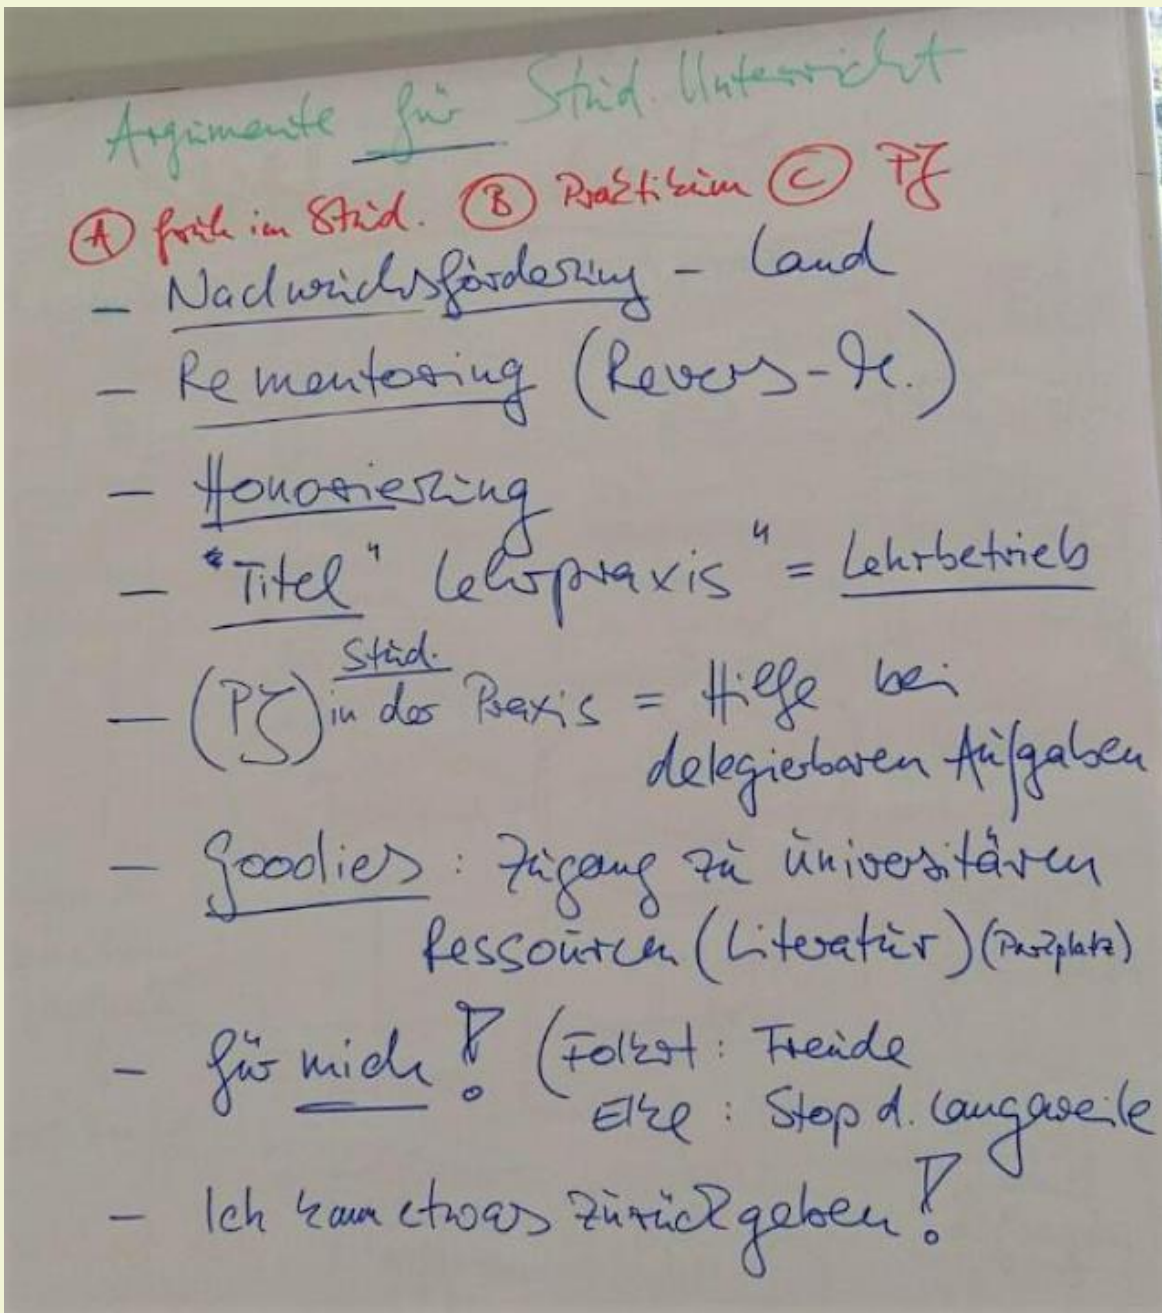 Argumente für Stud. Unterricht
(A) früh im Stud. (B) Praktikum (C) PJ
- Nachwuchsförderung - Land
- Rementoring (Revers-M.)
- Honorierung
- "Titel" Lehrpraxis" = Lehrbetrieb
- (PJ) Stud. in der Praxis = Hilfe bei
delegierbaren Aufgaben
- Goodies: Zugang zu universitären
Ressourcen (Literatur) (Parkplatz)
- für mich! (Folkert: Freude
Elke: Stop d. Langeweile
- Ich kann etwas zurückgeben!